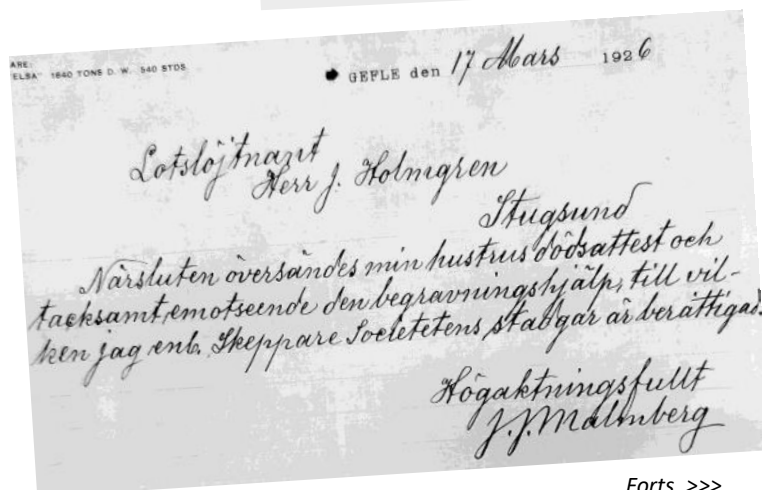 ARE:
ELSA" 1640 TONS D. W. 540 STDS.
GEFLE den 17 Mars 1926
Lotslöjtnant
Herr J. Holmgren
Stugsund
Närsluten översändes min hustrus dödsattest och
tacksamt emotseende den begravningshjälp, till vil-
ken jag enl. Skeppare Societetens stadgar är berättigad.
Högaktningsfullt
J. J. Malmberg
Forts. >>>